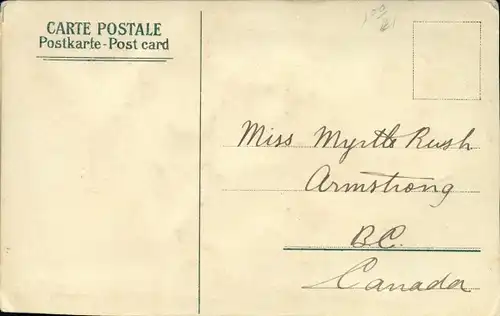 CARTE POSTALE
Postkarte - Post card
Miss Myrtle Rush
Armstrong
B.C.
Canada